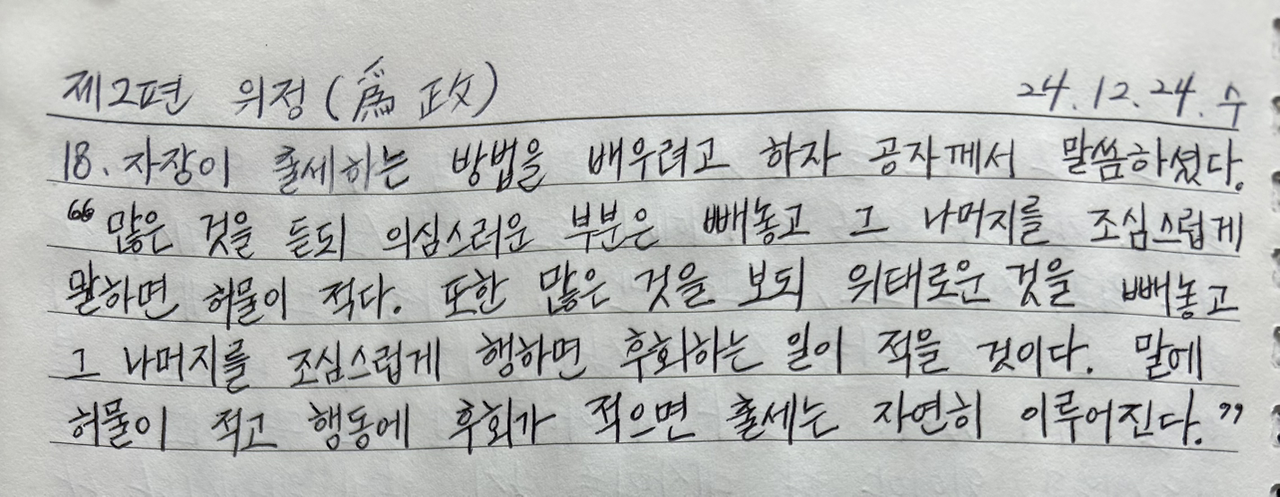 제2편 위정(爲政) 24.12.24. 수
18. 자장이 출세하는 방법을 배우려고 하자 공자께서 말씀하셨다.
“많은 것을 듣되 의심스러운 부분은 빼놓고 그 나머지를 조심스럽게
말하면 허물이 적다. 또한 많은 것을 보되 위태로운 것을 빼놓고
그 나머지를 조심스럽게 행하면 후회하는 일이 적을 것이다. 말에
허물이 적고 행동에 후회가 적으면 출세는 자연히 이루어진다.”